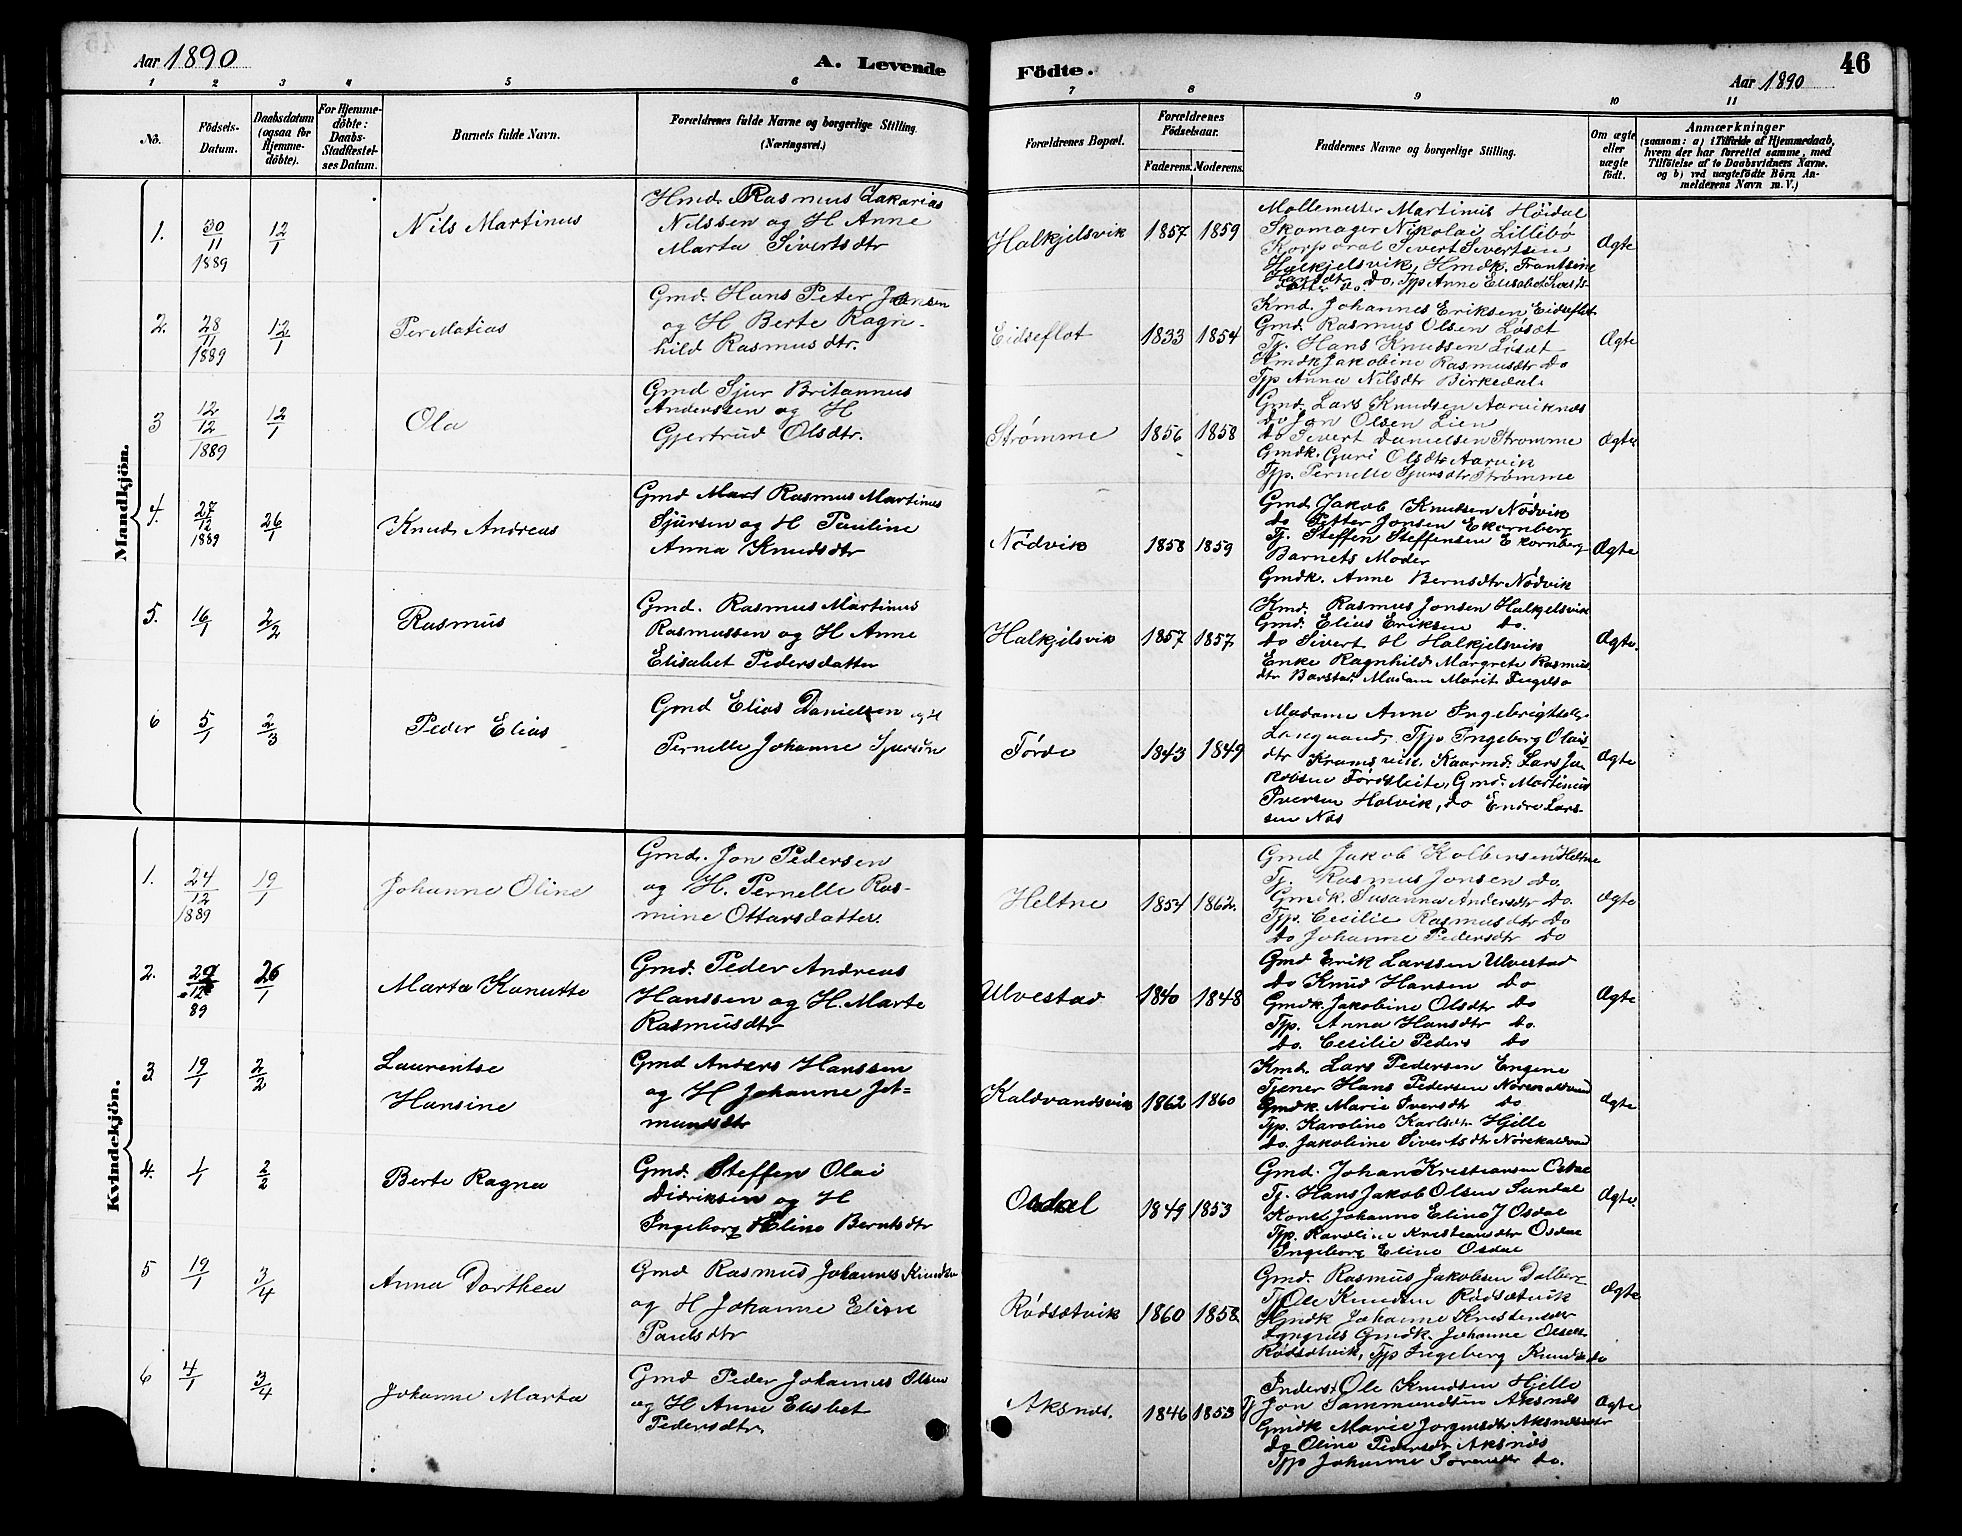 Aar 1890
A. Levende
Fødte.
Aar 1890
46
1 2 3 4 5 6
7 8 9 10 11
No.
Födsels-
Datum.
Daabsdatum
(ogsaa for
Hjemme-
döbte).
For Hjemme-
döbte:
Daabs-
Stadfæstel-
ses Datum.
Barnets fulde Navn.
Forældrenes fulde Navne og borgerlige Stilling.
(Næringsvei.)
Forældrenes Bopæl.
Forældrenes
Födselsaar.
Faderens. Moderens.
Faddernes Navne og borgerlige Stilling.
Om ægte
eller
uægte
födt.
Anmærkninger
(saasom: a) i Tilfælde af Hjemmedaab,
hvem der har forrettet samme, med
Tilföielse af to Daabsvidners Navne.
og b) ved uægtefödte Börn An-
melderens Navn m. V.)
Mandkjön.
1.
30/11 1889
12/1
Nils Martinus
Hmd. Rasmus Zakarias
Nilssen og H Anne
Marta Sivertsdtr
Halkjelsvik
1857 1859
Møllemester Martinus Höidal
Skomager Nikolai Lillebø
Korporal Sivert Sivertsen
Halkjelsvik, Hmdk. Frantsine
do, Tjp Anne Elisabet
Ægte
2.
28/11 1889
12/1
Per Matias
Gmd. Hans Peter Jensen
og H Berte Ragn-
hild Rasmusdtr.
Eidseflot
1833 1854
Kmd. Johannes Eriksen Eidseflot
Gmd. Rasmus Olsen Løsæt
Tj. Hans Knudsen Løsæt
Hmdk Jakobine Rasmusdtr Do
Tjp Anna Nilsdtr Birkedal.
Ægte
3
12/12 1889
12/1
Ola
Gmd Sjur Britannus
Anderssen og H
Gjertrud Olsdtr.
Strømme
1856 1858
Gmd. Lars Knudsen Aarviknæs
do Jon Olsen Lien
do Sivert Danielsen Strømme
Gmdk. Guri Olsdtr Aarvik
Tjp. Pernelle Sjursdtr Strømme
Ægte
4.
27/12 1889
26/1
Knud Andreas
Gmd Rasmus Martinus
Sjursen og H Pauline
Anna Knudsdtr
Nödvik
1858 1859
Gmd Jakob Knudsen Nödvik
do Petter Jonsen Ekornberg
Tj. Steffen Steffensen Ekornberg
Barnets Moder
Gmdk. Anne Bernsdtr Nödvik
Ægte
5.
16/1
2/2
Rasmus
Gmd. Rasmus Martinus
Rasmussen og H Anne
Elisabet Pedersdatter
Halkjelsvik
1857 1857.
Kmd. Rasmus Jonsen Halkjelsvik
Gmd. Elias Eriksen do.
do Sivert H Halkjelsvik
Enke Ragnhild Margrete Rasmus
dtr Barstad. Madam Marit
Ægte.
6
5/1
2/3
Peder Elias
Gmd Elias Danielsen og H
Pernelle Johanne Sjursdn
Førde
1843 1849
Madame Anne Ingebrigtsdtr
Tjp Ingeberg Olai
dtr Kaarmd. Lars Ja-
kobsen Førdsleite, Gmd. Martinus
Iversen Holvik, do Endre Lars-
sen Næs
Ægte
Kvindekjön.
1.
24/12 1889
19/1
Johanne Oline
Gmd. Jon Pedersen
og H. Pernelle Ras-
mine Ottarsdatter.
Heltne
1854 1862.
Gmd Jakob Kolbensen Heltne
Tj. Rasmus Jonsen do.
Gmdk. Susanna Andersdtr do.
Tjp. Cecilie Rasmusdtr Do
do Johanne Pedersdtr Do
Ægte
2.
29/12 89
26/1
Marta Kanutte
Gmd. Peder Andreas
Hanssen og H. Marte
Rasmusdtr
Ulvestad
1840 1848
Gmd Erik Larssen Ulvestad
do Knud Hansen do
Gmdk. Jakobine Olsdtr do
Tjp. Anna Hansdtr do.
do. Cecilie Peders do
Ægte
3
19/1
2/2
Laurentse
Hansine
Gmd Anders Hanssen
og H Johanne Jet-
mundsdtr
Kaldvandsvik
1862 1860
Kmd. Lars Pedersen Engene
Tjener Hans Pedersen
Gmdk. Marie Iversdtr do
Tjp. Karoline Karlsdtr Hjelle
do. Jakobine Sivertsdtr Nørekaldvad
Ægte
4.
1/1
2/2
Berte Ragna
Gmd. Steffen Olai
Didriksen og H
Ingeborg Eline Berntsdtr
Osdal
1849 1853
Gmd. Johan Kristiansen Osdal
Tj. Hans Jakob Olsen Sundal
Kone Johanne Eline J Osdal
Tjp. Karoline Kristiansdtr Osdal
Ingeborg Eline Osdal
Ægte.
5
19/1
3/4
Anna Dorthea
Gmd Rasmus Johannes Knudsen
og H Johanne Eline
Paulsdtr
Rødsætvik
1860 1858
Gmd. Rasmus Jakobsen Dalberg
Tj Ole Knudsen Rødsætvik
Hmdk Johanne
Gmdk. Johanne
Rødsætvik, Tjp Ingeberg Knudsd do
Ægte
6
4/1
3/4
Johanne Marta
Gmd Peder Johannes Olsen
og H Anne Elisbet
Pedersdtr.
Aksnæs.
1846 1853
Inderst Ole Knudsen Hjelle
Tj Jon Aksnæs
Gmdk Marie Jorgensdtr
do Oline Pedersdtr Aksnæs
Tjp Johanne do.
Ægte